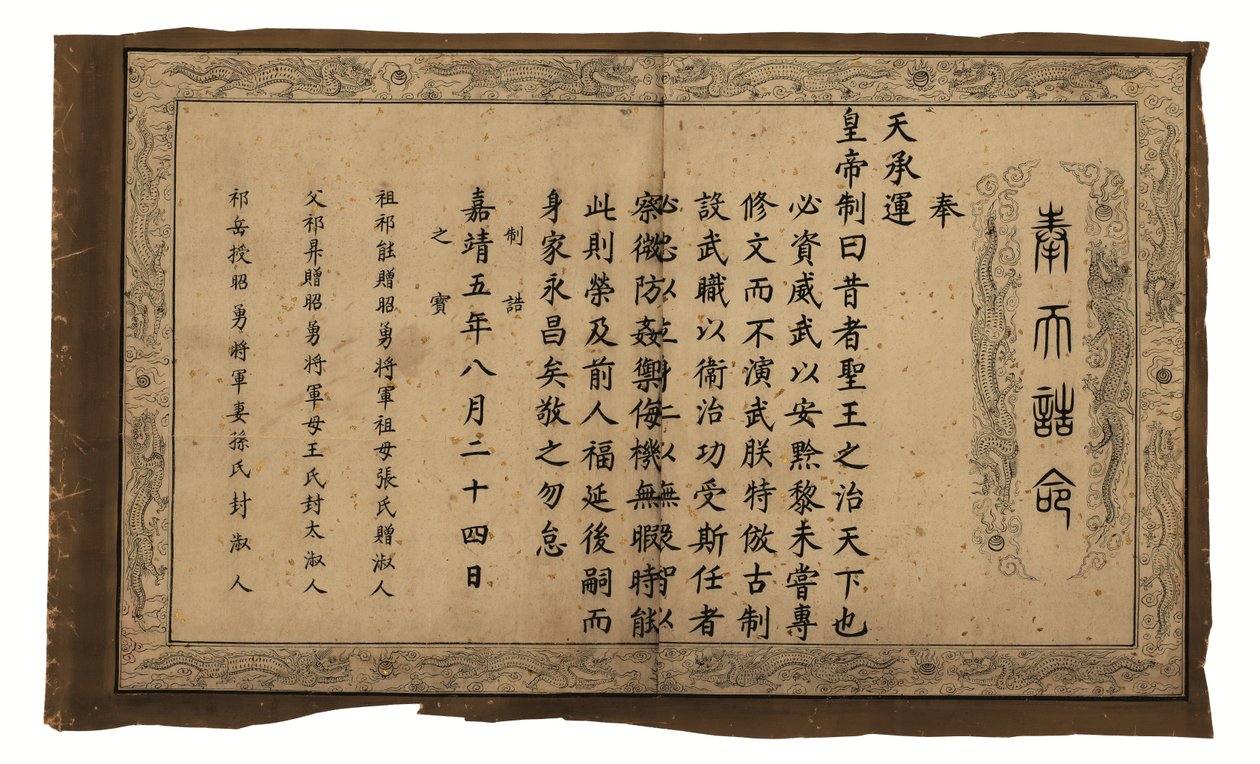 奉天誥命
奉
天承運
皇帝制曰昔者聖王之治天下也
必資威武以安黔黎未嘗專
修文而不演武朕特倣古制
設武職以衛治功受斯任者
必忠以立身仁以撫眾智以
察微防姦禦侮機無暇時能
此則榮及前人福延後嗣而
身家永昌矣敬之勿怠
制誥
嘉靖五年八月二十四日
之寶
祖祁能贈昭勇將軍祖母張氏贈淑人
父祁昇贈昭勇將軍母王氏封太淑人
祁岳授昭勇將軍妻孫氏封淑人